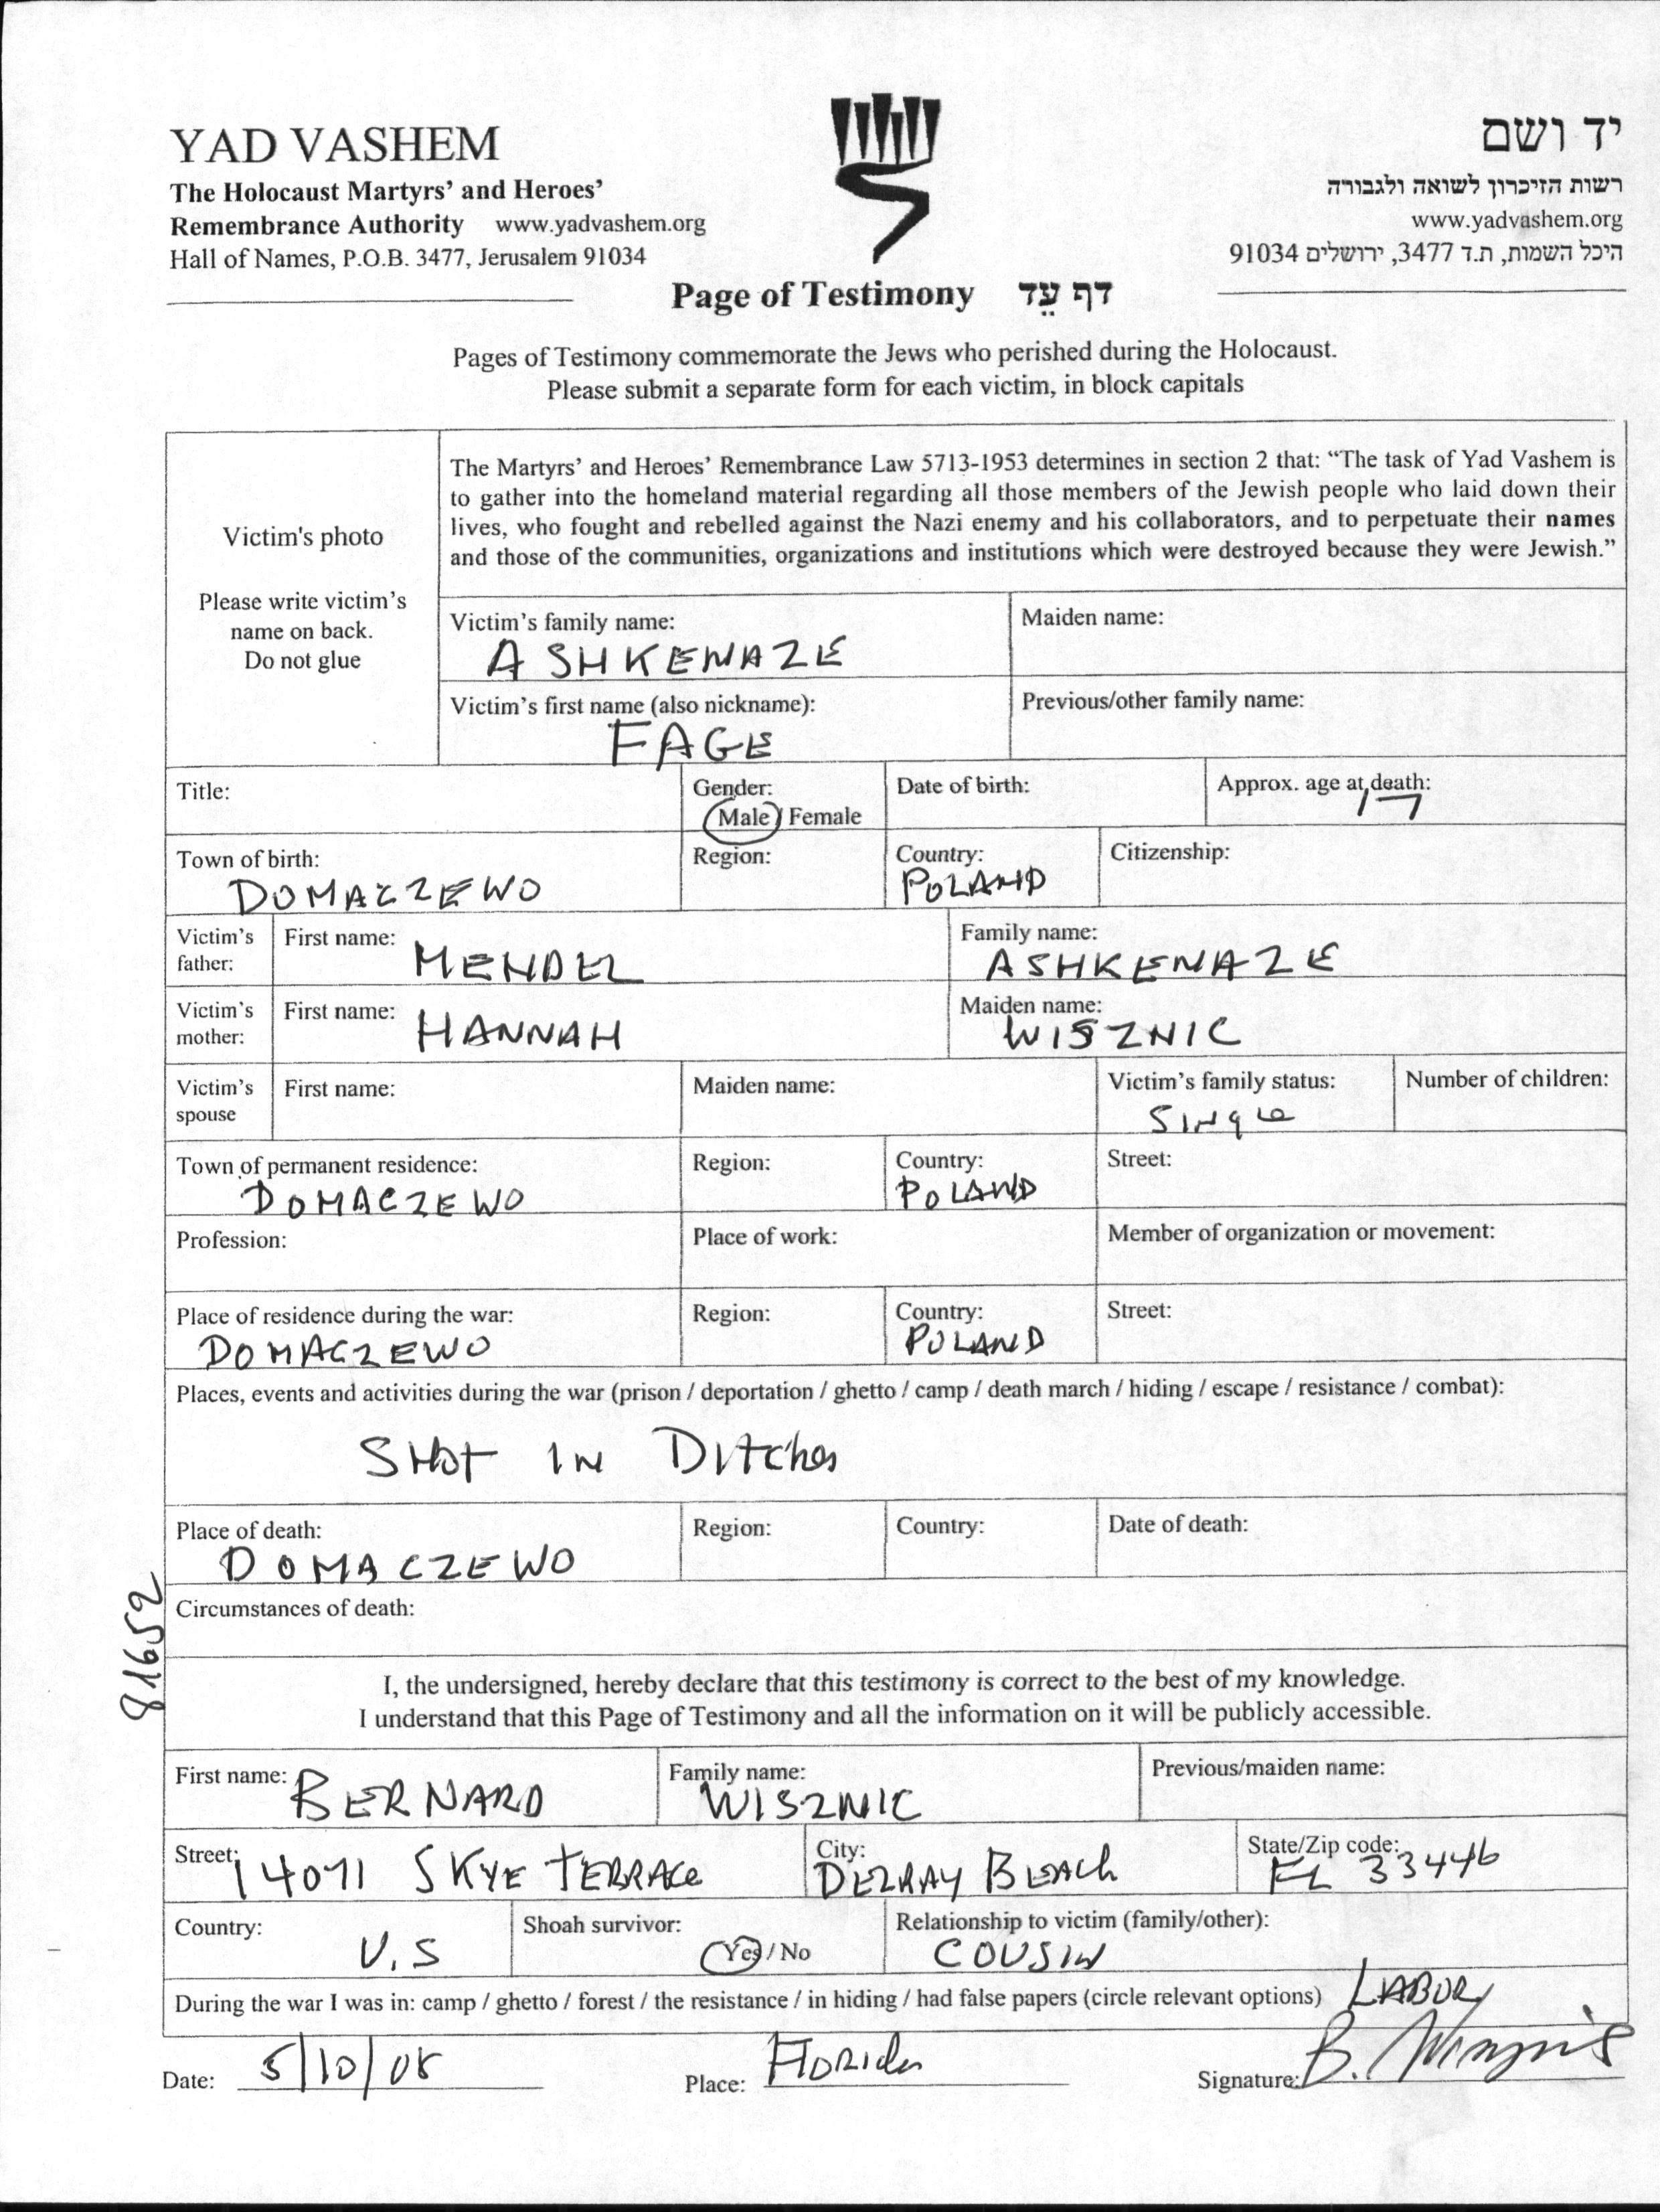 YAD VASHEM
The Holocaust Martyrs' and Heroes'
Remembrance Authority www.yadvashem.org
Hall of Names, P.O.B. 3477, Jerusalem 91034
יד ושם
רשות הזיכרון לשואה ולגבורה
www.yadvashem.org
היכל השמות, ת.ד 3477, ירושלים 91034
Page of Testimony דף עֵד
Pages of Testimony commemorate the Jews who perished during the Holocaust.
Please submit a separate form for each victim, in block capitals
Victim's photo
Please write victim's
name on back.
Do not glue
The Martyrs' and Heroes' Remembrance Law 5713-1953 determines in section 2 that: "The task of Yad Vashem is
to gather into the homeland material regarding all those members of the Jewish people who laid down their
lives, who fought and rebelled against the Nazi enemy and his collaborators, and to perpetuate their names
and those of the communities, organizations and institutions which were destroyed because they were Jewish."
Victim's family name: Maiden name:
ASHKENAZE
Victim's first name (also nickname): Previous/other family name:
FAGE
Title: Gender: Date of birth: Approx. age at death:
Male / Female 17
Town of birth: Region: Country: Citizenship:
DOMACZEWO POLAND
Victim's father: First name: MENDEL Family name: ASHKENAZE
Victim's mother: First name: HANNAH Maiden name: WISZNIC
Victim's spouse First name: Maiden name: Victim's family status: Number of children:
SINGLE
Town of permanent residence: Region: Country: Street:
DOMACZEWO POLAND
Profession: Place of work: Member of organization or movement:
Place of residence during the war: Region: Country: Street:
DOMACZEWO POLAND
Places, events and activities during the war (prison / deportation / ghetto / camp / death march / hiding / escape / resistance / combat):
SHOT IN DITCHES
Place of death: Region: Country: Date of death:
DOMACZEWO
81652
Circumstances of death:
I, the undersigned, hereby declare that this testimony is correct to the best of my knowledge.
I understand that this Page of Testimony and all the information on it will be publicly accessible.
First name: BERNARD Family name: WISZNIC Previous/maiden name:
Street: 14071 SKYE TERRACE City: DELRAY BEACH State/Zip code: FL 33446
Country: U.S Shoah survivor: Yes / No Relationship to victim (family/other): COUSIN
During the war I was in: camp / ghetto / forest / the resistance / in hiding / had false papers (circle relevant options) LABOR
Date: 5/10/08 Place: FLORIDA Signature: B. Wisznic